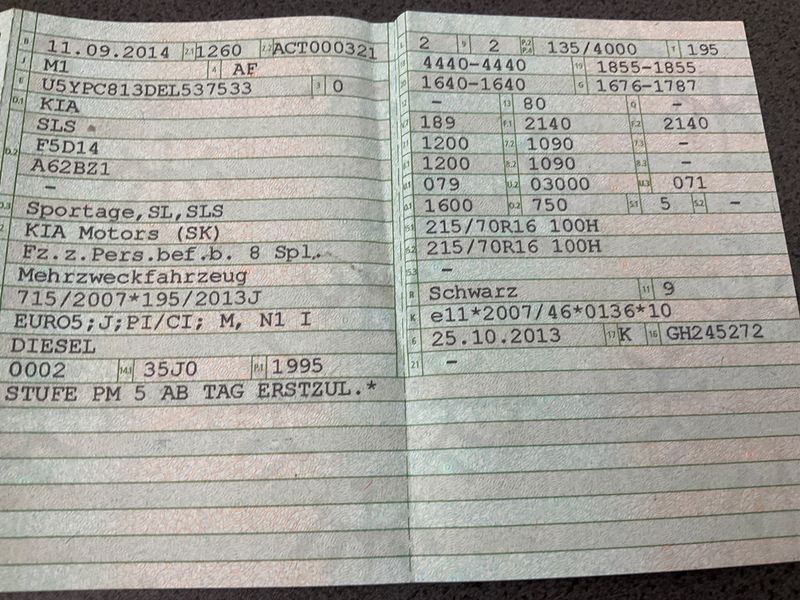 B 11.09.2014 2.1 1260 2.2 ACT000321
J M1 4 AF
E U5YPC813DEL537533 3 0
D.1 KIA
SLS
D.2 F5D14
A62BZ1
–
D.3 Sportage,SL,SLS
2 KIA Motors (SK)
Fz.z.Pers.bef.b. 8 Spl.
Mehrzweckfahrzeug
715/2007*195/2013J
EURO5;J;PI/CI; M, N1 I
DIESEL
0002 14.1 35J0 P.1 1995
STUFE PM 5 AB TAG ERSTZUL.*
L 2 9 2 P.2 P.4 135/4000 T 195
18 4440-4440 19 1855-1855
20 1640-1640 G 1676-1787
12 – 13 80 Q –
V.7 189 F.1 2140 F.2 2140
7.1 1200 7.2 1090 7.3 –
8.1 1200 8.2 1090 8.3 –
U.1 079 U.2 03000 U.3 071
O.1 1600 O.2 750 S.1 5 S.2 –
15.1 215/70R16 100H
15.2 215/70R16 100H
15.3 –
R Schwarz 11 9
K e11*2007/46*0136*10
6 25.10.2013 17 K 16 GH245272
21 –